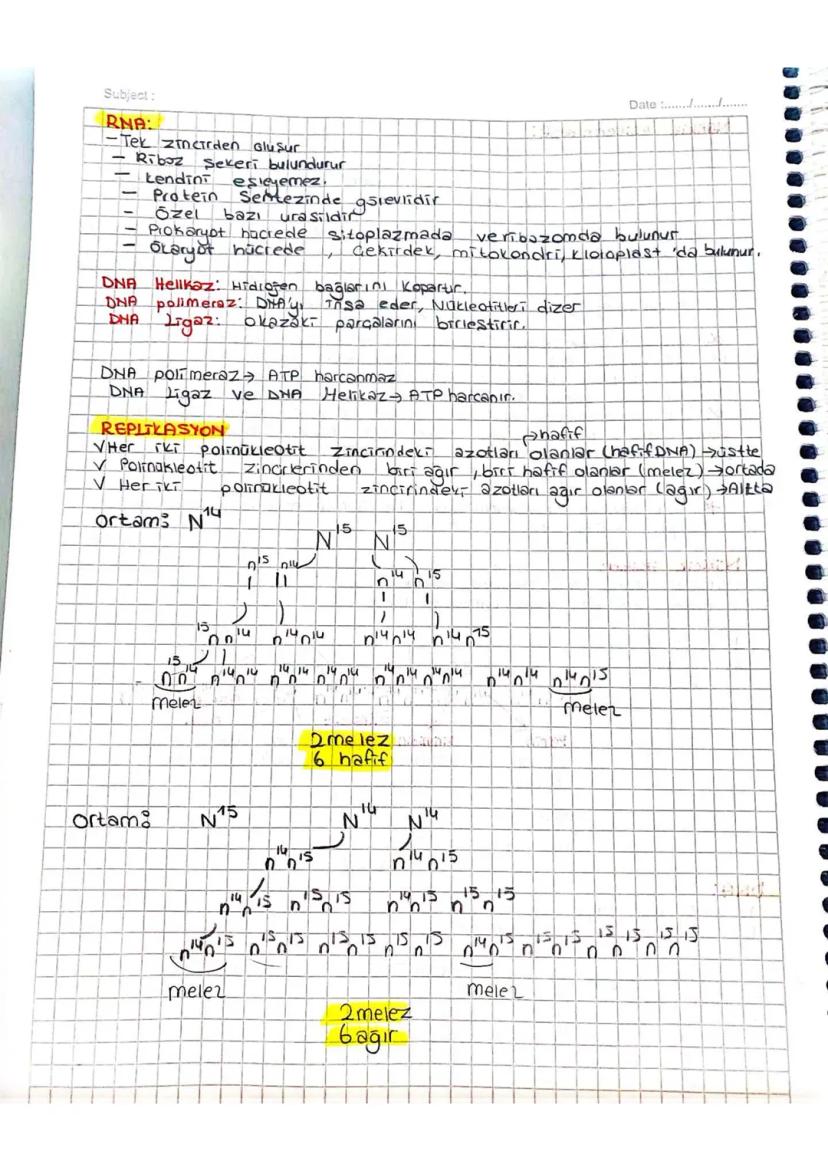 Subject :
Date :......./......./.......
RNA:
- Tek zincirden oluşur
- Riboz şekeri bulundurur
- Kendini eşleyemez.
- Protein Sentezinde görevlidir
- Özel bazı urasildir
- Prokaryot hücrede sitoplazmada ve ribozomda bulunur
- Ökaryot hücrede , Çekirdek, mitokondri, kloroplast 'da bulunur.
DNA Helikaz: Hidrojen bağlarını Kopartır.
DNA polimeraz: DNA'yı inşa eder, Nükleotitleri dizer
DNA Ligaz: okazaki parçalarını birleştirir.
DNA polimeraz → ATP harcanmaz
DNA Ligaz ve DNA Helikaz → ATP harcanır.
REPLİKASYON
→hafif
√ Her iki polinükleotit zincirindeki azotları olanlar (hafif DNA) → üstte
√ Polinükleotit zincirlerinden biri ağır , biri hafif olanlar (melez) → ortada
√ Her iki polinükleotit zincirindeki azotları ağır olanlar (ağır) → Altta
ortam: N¹⁴
N¹⁵ N¹⁵
n¹⁵ n¹⁴ n¹⁴ n¹⁵
¹⁵n n¹⁴ n¹⁴n¹⁴ n¹⁴n¹⁴ n¹⁴n¹⁵
¹⁵n n¹⁴ n¹⁴n¹⁴ n¹⁴n¹⁴ n¹⁴n¹⁴ n¹⁴n¹⁴ n¹⁴n¹⁴ n¹⁴n¹⁴ n¹⁴n¹⁵
melez melez
2 melez
6 hafif
ortam: N¹⁵ N¹⁴ N¹⁴
n¹⁴n¹⁵ n¹⁴n¹⁵
n¹⁴n¹⁵ n¹⁵n¹⁵ n¹⁴n¹⁵ n¹⁵n¹⁵
n¹⁴n¹⁵ n¹⁵n¹⁵ n¹⁵n¹⁵ n¹⁵n¹⁵ n¹⁴n¹⁵ n¹⁵n¹⁵ n¹⁵n¹⁵ n¹⁵n¹⁵
melez melez
2 melez
6 ağır